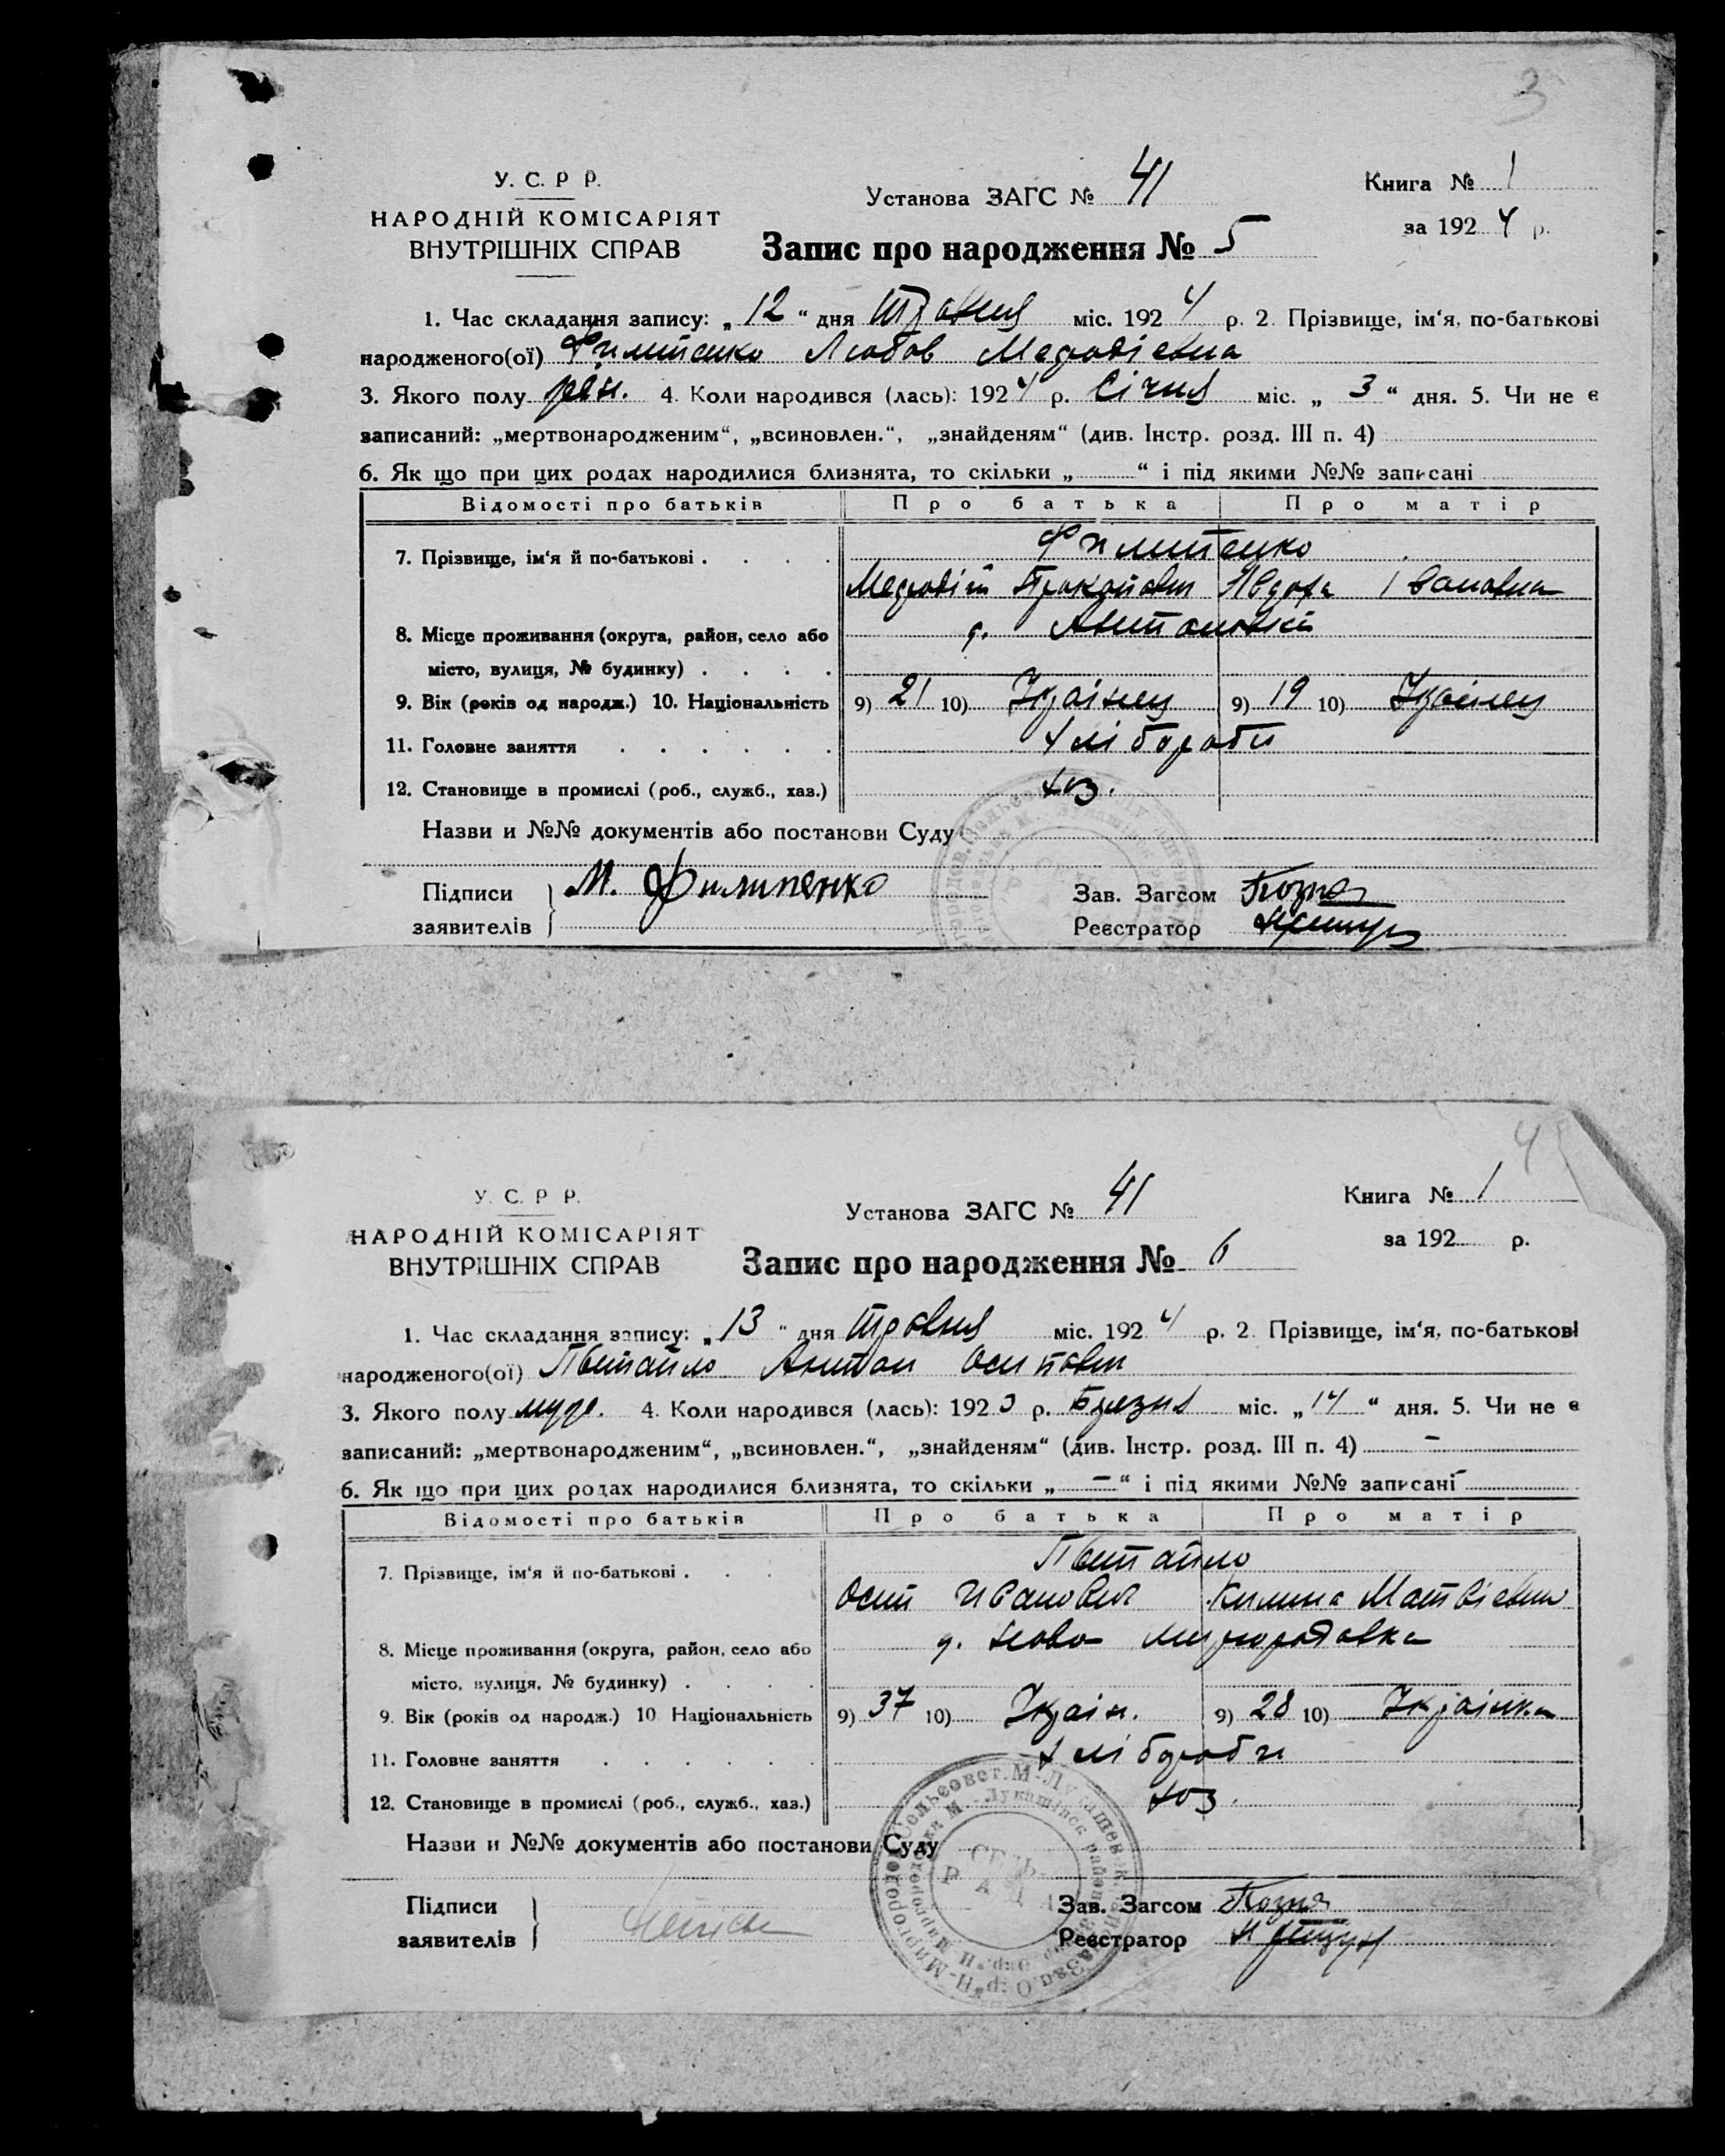 3
У. С. Р Р.
НАРОДНІЙ КОМІСАРІЯТ
ВНУТРІШНІХ СПРАВ
Установа ЗАГС № 41
Книга № 1
за 1924 р.
Запис про народження № 5
1. Час складання запису: „12“ дня Травня міс. 1924 р. 2. Прізвище, ім‘я, по-батькові
народженого(ої) Филипенко Любов Медодіевна
3. Якого полу жін. 4. Коли народився (лась): 1924 р. Січня міс. „3“ дня. 5. Чи не є
записаний: „мертвонародженим“, „всиновлен.“, „знайденям“ (див. Інстр. розд. III п. 4)
6. Як що при цих родах народилися близнята, то скільки „ “ і під якими №№ записані
Відомості про батьків Про батька Про матір
7. Прізвище, ім‘я й по-батькові . . . . Филипенко
Прокопович Явдоха Івановна
8. Місце проживання (округа, район, село або
місто, вулиця, № будинку) . . . .
9. Вік (років од народж.) 10. Національність 9) 21 10) Українец 9) 19 10) Україлец
11. Головне заняття . . . . . . Хлібороби
12. Становище в промислі (роб., служб., хаз.) хоз.
Назви и №№ документів або постанови Суду
Підписи
заявителів
М. Филипенко
Зав. Загсом
Реєстратор
4
У. С. Р Р.
НАРОДНІЙ КОМІСАРІЯТ
ВНУТРІШНІХ СПРАВ
Установа ЗАГС № 41
Книга № 1
за 192 р.
Запис про народження № 6
1. Час складання запису: „13“ дня Травня міс. 1924 р. 2. Прізвище, ім‘я, по-батькові
народженого(ої) Антон Осипович
3. Якого полу муж. 4. Коли народився (лась): 1923 р. Березня міс. „14“ дня. 5. Чи не є
записаний: „мертвонародженим“, „всиновлен.“, „знайденям“ (див. Інстр. розд. III п. 4) –
6. Як що при цих родах народилися близнята, то скільки „–“ і під якими №№ записані
Відомості про батьків Про батька Про матір
7. Прізвище, ім‘я й по-батькові . . .
Осип Иванович Килина Матвієвна
8. Місце проживання (округа, район, село або
д. Ново Миргородовка
місто, вулиця, № будинку) . . . .
9. Вік (років од народж.) 10. Національність 9) 37 10) Україн. 9) 28 10) Українка
11. Головне заняття . . . . . . Хліборобы
12. Становище в промислі (роб., служб., хаз.) хоз.
Назви и №№ документів або постанови Суду
Підписи
заявителів
Зав. Загсом
Реєстратор